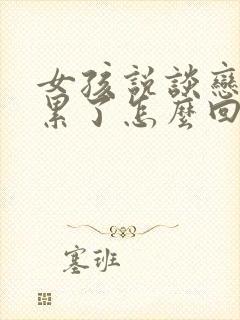 女孩説談戀
累了怎麼回
塞班